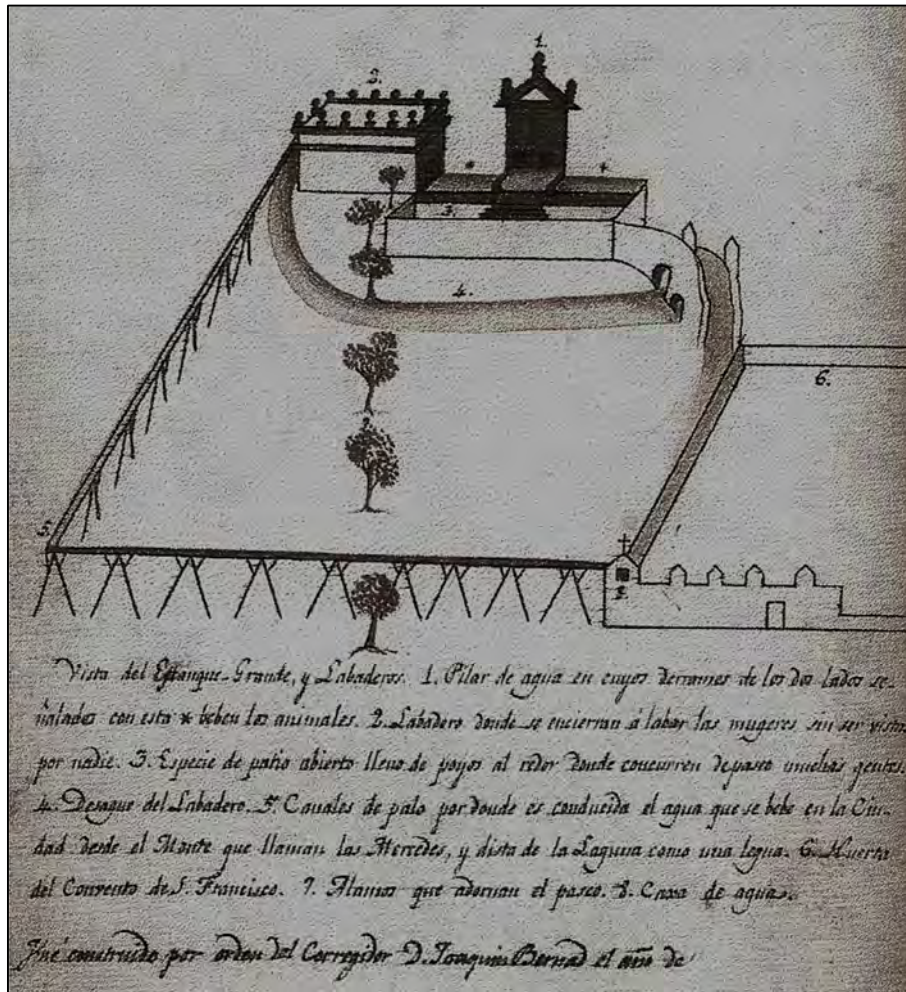 1.
2.
*
+
3.
4.
6.
5.
8.
Vista del Estanque-Grande, y Labaderos. 1. Pilar de agua en cuyos derrames de los dos lados se-
ñalados con esta * beben los animales. 2. Labadero donde se encierran á labar las mugeres sin ser vistas
por nadie. 3. Especie de patio abierto lleno de poyos al redor donde concurren de paseo muchas gentes.
4. Desague del Labadero. 5. Canales de palo por donde es conducida el agua que se bebe en la Ciu-
dad desde el Monte que llaman las Mercedes, y dista de la Laguna como una legua. 6. Huerta
del Convento de S. Francisco. 7. Alamos que adornan el paseo. 8. Caxa de agua.
Fué construido por orden del Corregidor D. Joaquin Bernad el año de